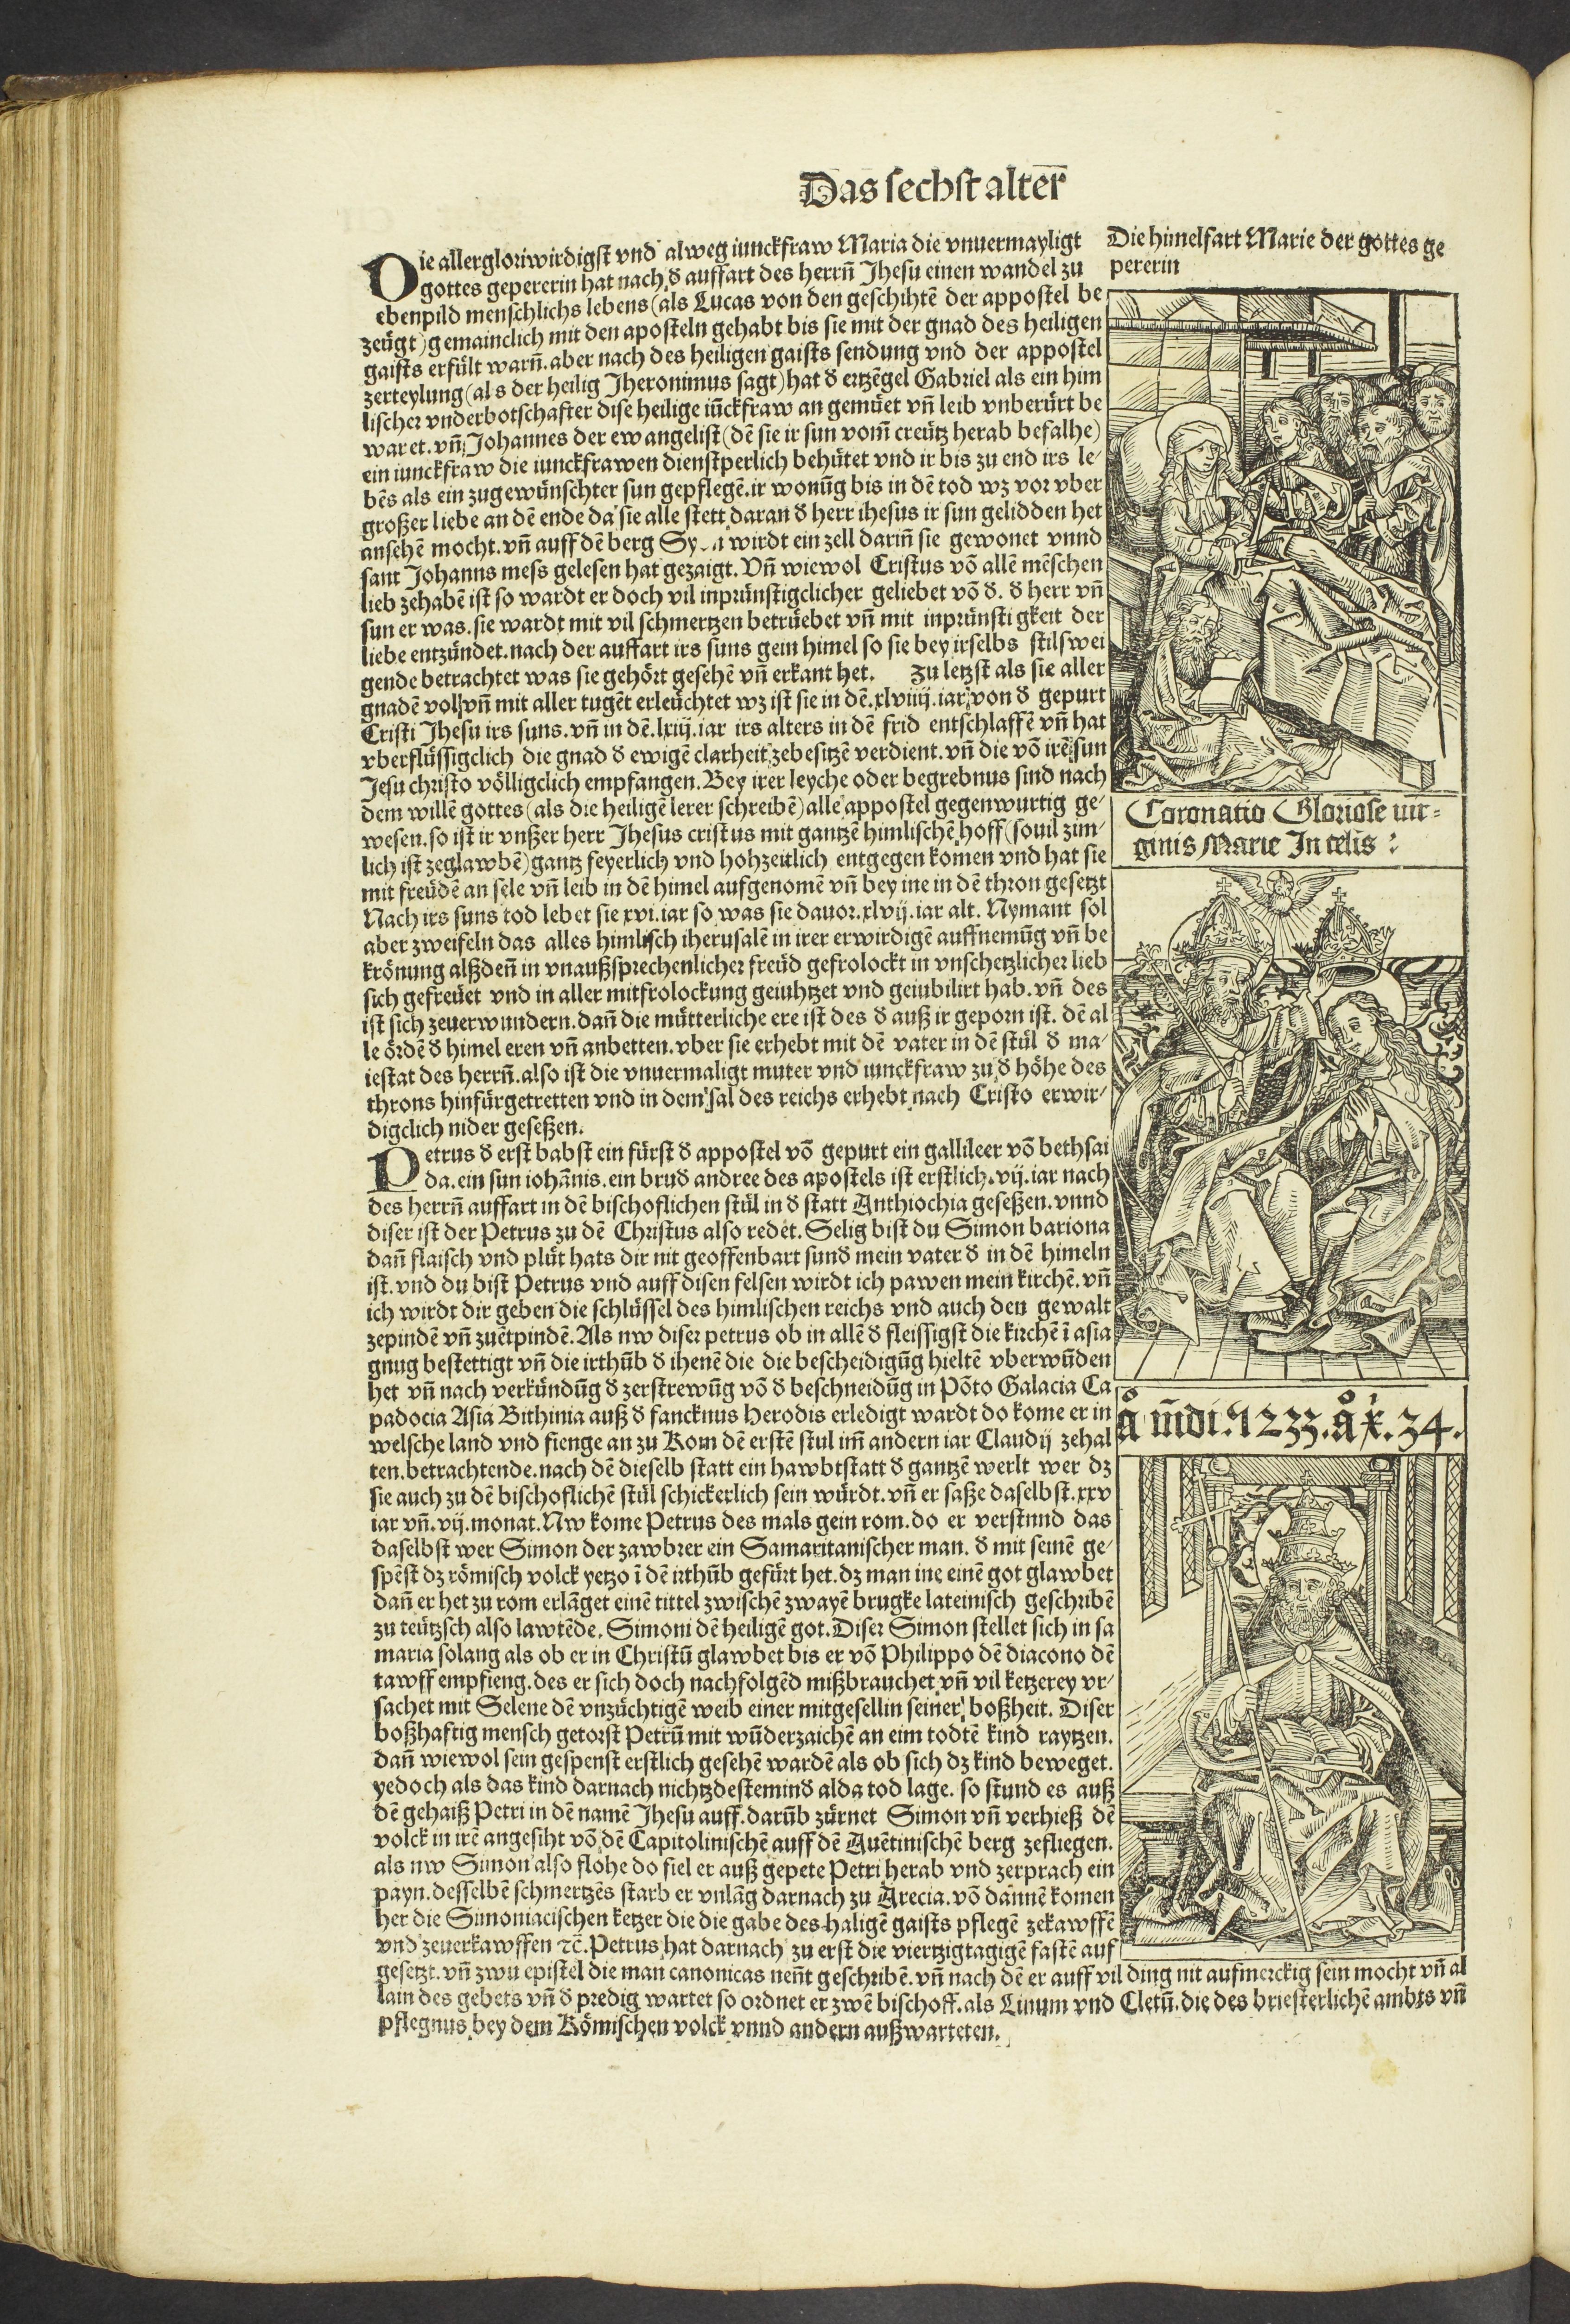 Das sechst alter
Die allergloriwirdigst vnd alweg iunckfraw Maria die vnuermayligt
gottes gepererin hat nach d̕ auffart des herrñ Jhesu einen wandel zu
ebenpild menschlichs lebens (als Lucas von den geschihtẽ der appostel be
zeügt) gemainclich mit den aposteln gehabt bis sie mit der gnad des heiligen
gaists erfült warñ. aber nach des heiligen gaists sendung vnd der appostel
zerteylung (als der heilig Jheronimus sagt) hat d̕ ertzẽgel Gabriel als ein him
lischer vnderbotschafter dise heilige iũckfraw an gemüet vñ leib vnberürt be
waret. vñ Johannes der ewangelist (dẽ sie ir sun vom̃ creütz herab befalhe)
ein iunckfraw die iunckfrawen dienstperlich behütet vnd ir bis zu end irs le-
bẽs als ein zugewünschter sun gepflegẽ. ir wonũg bis in dẽ tod wz vor vber
großer liebe an dẽ ende da sie alle stett daran d̕ herr ihesus ir sun gelidden het
ansehẽ mocht. vñ auff dẽ berg wirdt ein zell dariñ sie gewonet vnnd
sant Johanns mess gelesen hat gezaigt. Vñ wiewol Cristus võ allẽ mẽschen
lieb zehabẽ ist so wardt er doch vil inprünstigclicher geliebet võ d̕. d̕ herr vñ
sun er was. sie wardt mit vil schmertzen betrüebet vñ mit inprünstigkeit der
liebe entzündet. nach der auffart irs suns gein himel so sie bey irselbs stilswei
gende betrachtet was sie gehört gesehẽ vñ erkant het. Zu letzst als sie aller
gnadẽ vol vñ mit aller tugẽt erleüchtet wz ist sie in dẽ. xlviiij. iar von d̕ gepurt
Cristi Jhesu irs suns. vñ in dẽ. lxiij. iar irs alters in dẽ frid entschlaffẽ vñ hat
vberflüssigclich die gnad d̕ ewigẽ clarheit zebesitzẽ verdient. vñ die võ irẽ sun
Jesu christo völligclich empfangen. Bey irer leyche oder begrebnus sind nach
dem willẽ gottes (als die heiligẽ lerer schreibẽ) alle appostel gegenwurtig ge-
wesen. so ist ir vnßer herr Jhesus cristus mit gantzẽ himlischẽ hoff (souil zim-
lich ist zeglawbẽ) gantz feyerlich vnd hohzeitlich entgegen komen vnd hat sie
mit freüdẽ an sele vñ leib in dẽ himel aufgenomẽ vñ bey ine in dẽ thron gesetzt
Nach irs suns tod lebet sie xvi. iar so was sie dauor. xlvij. iar alt. Nymant sol
aber zweifeln das alles himlisch iherusalẽ in irer erwirdigẽ auffnemũg vñ be
krönung alßdeñ in vnaußsprechenlicher freüd gefrolockt in vnschetzlicher lieb
sich gefreüet vnd in aller mitfrolockung geiuhtzet vnd geiubilirt hab. vñ des
ist sich zeuerwundern. dañ die mütterliche ere ist des d̕ auß ir geporn ist. dẽ al
le ördẽ d̕ himel eren vñ anbetten. vber sie erhebt mit dẽ vater in dẽ stül d̕ ma-
iestat des herrñ. also ist die vnuermaligt muter vnd iunckfraw zu d̕ höhe des
throns hinfürgetretten vnd in dem sal des reichs erhebt nach Cristo erwir-
digclich nider geseßen.
Petrus d̕ erst babst ein fürst d̕ appostel võ gepurt ein gallileer võ bethsai
da. ein sun iohãnis. ein brud̕ andree des apostels ist erstlich. vij. iar nach
des herrñ auffart in dẽ bischoflichen stül in d̕ statt Anthiochia geseßen. vnnd
diser ist der Petrus zu dẽ Christus also redet. Selig bist du Simon bariona
dañ flaisch vnd plüt hats dir nit geoffenbart sund̕ mein vater d̕ in dẽ himeln
ist. vnd du bist Petrus vnd auff disen felsen wirdt ich pawen mein kirchẽ. vñ
ich wirdt dir geben die schlüssel des himlischen reichs vnd auch den gewalt
zepindẽ vñ zuẽtpindẽ. Als nw diser petrus ob in allẽ d̕ fleissigst die kirchẽ ĩ asia
gnug bestettigt vñ die irthũb d̕ ihenẽ die die bescheidigũg hieltẽ vberwũden
het vñ nach verkündũg d̕ zerstrewũg võ d̕ beschneidũg in Põto Galacia Ca
padocia Asia Bithinia auß d̕ fancknus Herodis erledigt wardt do kome er in
welsche land vnd fienge an zu Rom dẽ erstẽ stul im̃ andern iar Claudij zehal
ten. betrachtende. nach dẽ dieselb statt ein hawbtstatt d̕ gantzẽ werlt wer dz
sie auch zu dẽ bischoflichẽ stül schickerlich sein würdt. vñ er saße daselbst. xxv
iar vñ. vij. monat. Nw kome Petrus des mals gein rom. do er verstnnd das
daselbst wer Simon der zawbrer ein Samaritanischer man. d̕ mit seinẽ ge-
spẽst dz römisch volck yetzo ĩ dẽ irthũb gefürt het. dz man ine einẽ got glawbet
dañ er het zu rom erlãget einẽ tittel zwischẽ zwayẽ brugke lateinisch geschribẽ
zu teützsch also lawtẽde. Simoni dẽ heiligẽ got. Diser Simon stellet sich in sa
maria solang als ob er in Christũ glawbet bis er võ Philippo dẽ diacono dẽ
tawff empfieng. des er sich doch nachfolgẽd mißbrauchet vñ vil ketzerey vr-
sachet mit Selene dẽ vnzüchtigẽ weib einer mitgesellin seiner boßheit. Diser
boßhaftig mensch getorst Petrũ mit wũderzaichẽ an eim todtẽ kind raytzen.
dañ wiewol sein gespenst erstlich gesehẽ wardẽ als ob sich dz kind beweget.
yedoch als das kind darnach nichtzdestemind̕ alda tod lage. so stund es auß
dẽ gehaiß Petri in dẽ namẽ Jhesu auff. darũb zürnet Simon vñ verhieß dẽ
volck in irẽ angesiht võ dẽ Capitolinischẽ auff dẽ Auẽtinischẽ berg zefliegen.
als nw Simon also flohe do fiel er auß gepete Petri herab vnd zerprach ein
payn. desselbẽ schmertzẽs starb er vnlãg darnach zu Arecia. võ dannẽ komen
her die Simoniacischen ketzer die die gabe des haligẽ gaists pflegẽ zekawffẽ
vnd zeuerkawffen ⁊c̃. Petrus hat darnach zu erst die viertzigtagigẽ fastẽ auf
gesetzt. vñ zwu epistel die man canonicas neñt geschribẽ. vñ nach dẽ er auff vil ding nit aufmerckig sein mocht vñ al
lain des gebets vñ d̕ predig wartet so ordnet er zwẽ bischoff. als Linum vnd Cletũ. die des briesterlichẽ ambts vñ
pflegnus bey dem Römischen volck vnnd andern außwarteten.
Die himelfart Marie der gottes ge
pererin
Coronatio Gloriose uir=
ginis Marie In celis :
å m̃di. 5233. å x̊. 34.